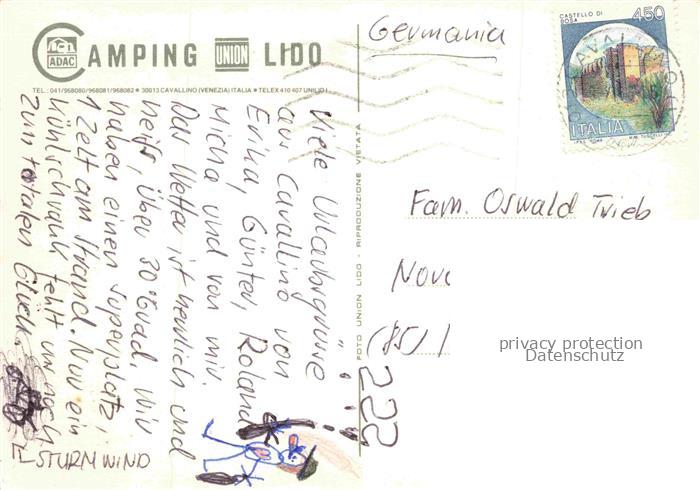 CAMPING UNION LIDO
ADAC
TEL.: 041/968080/968081/968082 ★ 30013 CAVALLINO (VENEZIA) ITALIA ★ TELEX 410 407 UNILIDO I
Viele Urlaubsgrüsse
aus Cavallino von
Erika, Günter, Roland
Micha und von mir.
Das Wetter ist herrlich und
heiß, über 30 Grad. Wir
haben einen superplatz,
1 Zelt am Strand. Nur ein
Kühlschrank fehlt uns noch
zum totalen Glück.
STURMWIND
FOTO UNION LIDO - RIPRODUZIONE VIETATA
Germania
CASTELLO DI
BOSA
450
ITALIA
CAVALLINO
Fam. Oswald Trieb
(85)
222
privacy protection
Datenschutz